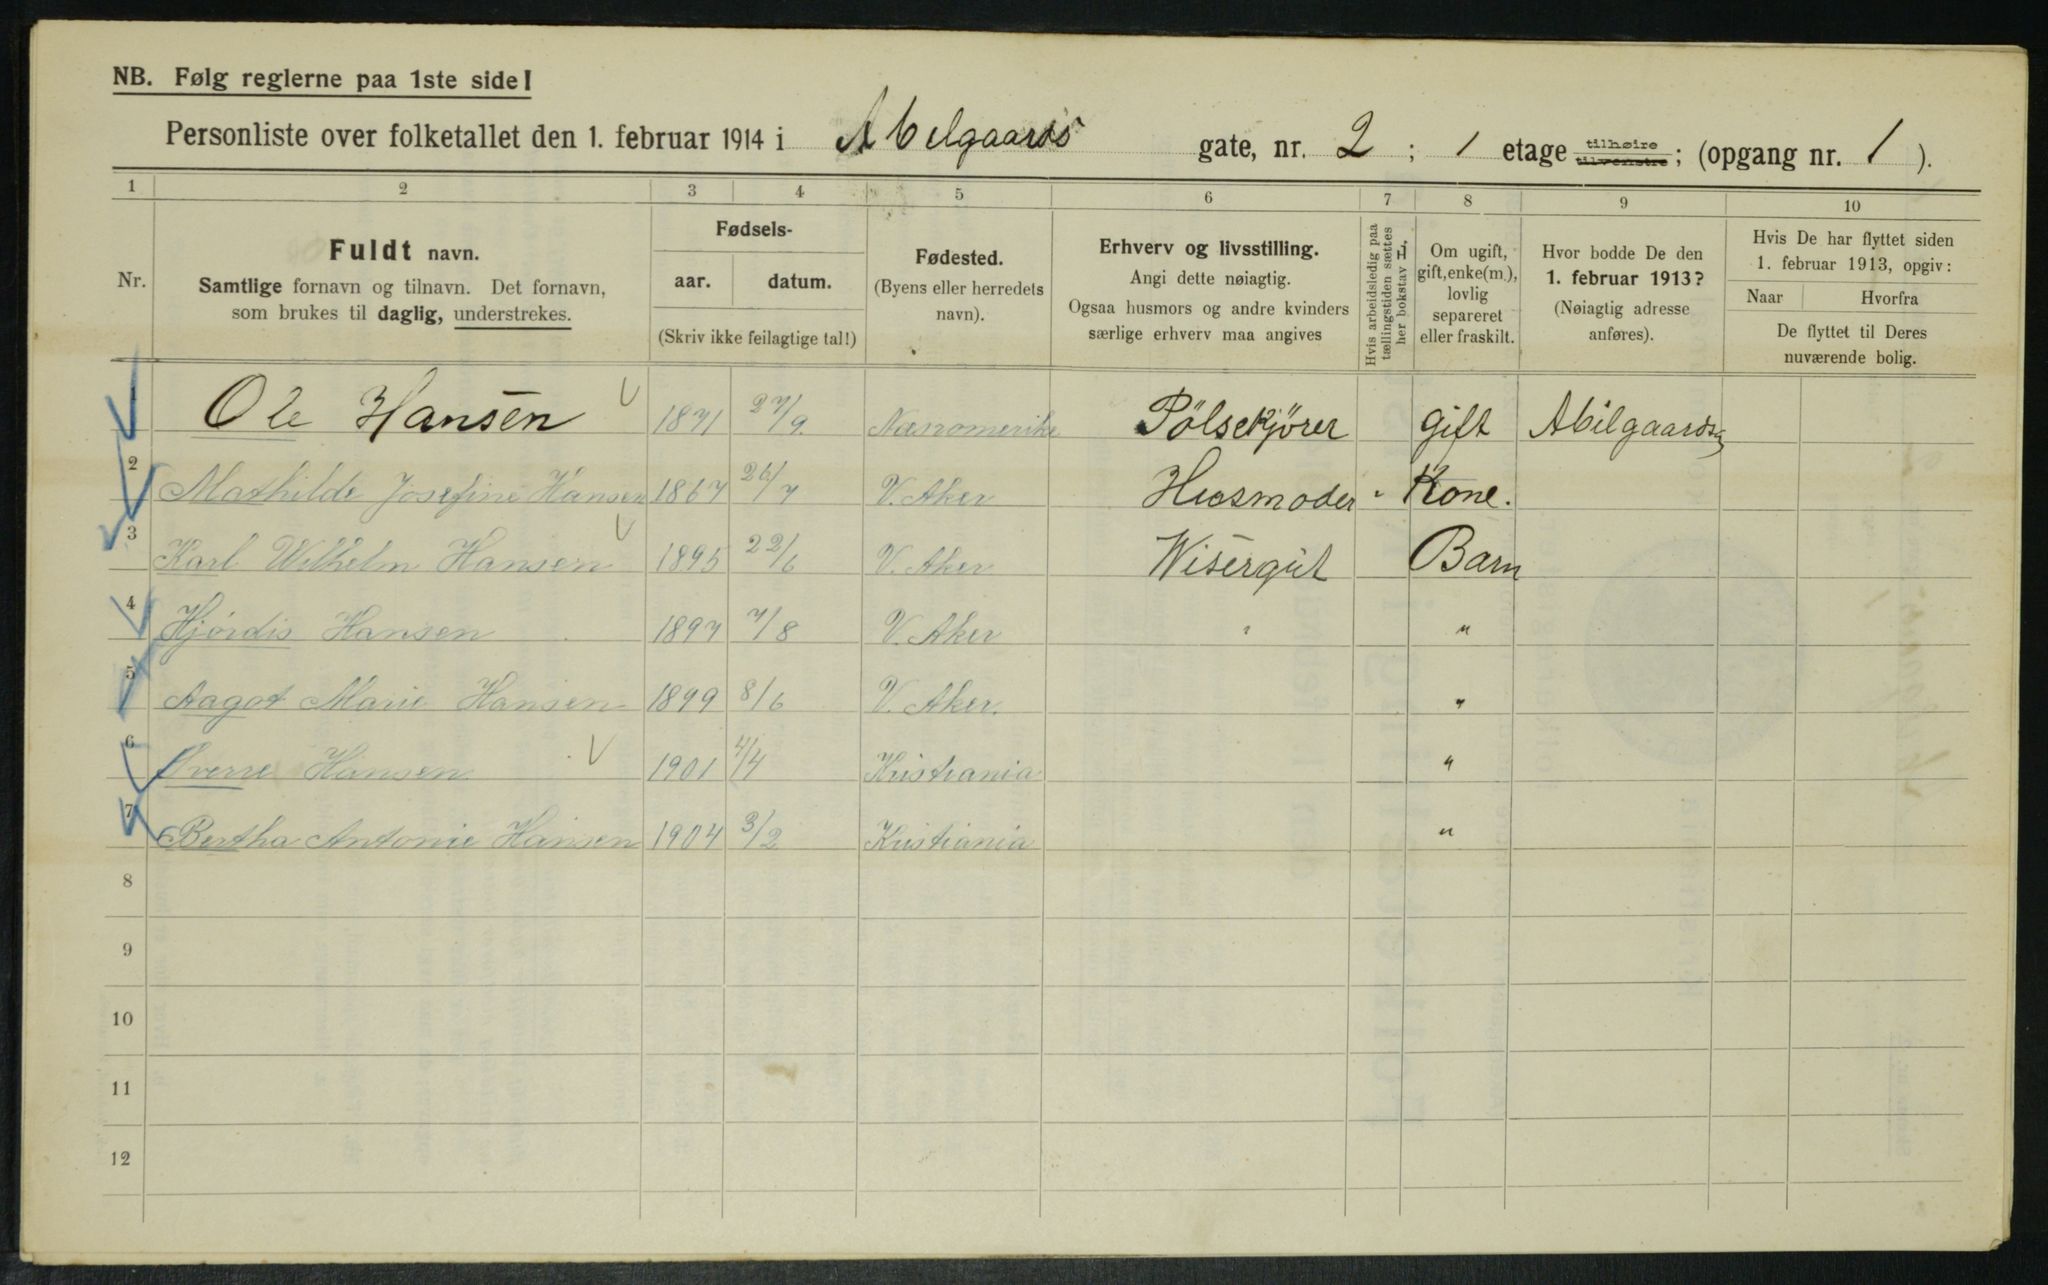 NB. Følg reglerne paa 1ste side!
Personliste over folketallet den 1. februar 1914 i Abelgaards gate, nr. 2 ; 1 etage tilhøire tilvenstre ; (opgang nr. 1 ).
1 2 3 4 5 6 7 8 9 10
Nr.
Fuldt navn.
Samtlige fornavn og tilnavn. Det fornavn,
som brukes til daglig, understrekes.
Fødsels-
aar. datum.
(Skriv ikke feilagtige tal!)
Fødested.
(Byens eller herredets
navn).
Erhverv og livsstilling.
Angi dette nøiagtig.
Ogsaa husmors og andre kvinders
særlige erhverv maa angives
Hvis arbeidsledig paa
tællingstiden sættes
her bokstav L.
Om ugift,
gift, enke(m.),
lovlig
separeret
eller fraskilt.
Hvor bodde De den
1. februar 1913?
(Nøiagtig adresse
anføres).
Hvis De har flyttet siden
1. februar 1913, opgiv:
Naar Hvorfra
De flyttet til Deres
nuværende bolig.
1 Ole Hansen 1871 27/9. Næsromerike Pölsekjörer gift Abilgaardsg
2 Mathilde Josefine Hansen 1867 26/7 V. Aker Husmoder " Kone.
3 Karl Wilhelm Hansen 1895 22/6 V. Aker Wisergut Barn
4 Hjördis Hansen 1897 7/8 V. Aker " "
5 Aagot Marie Hansen 1899 8/6 V. Aker. "
6 Sverre Hansen 1901 4/4 Kristiania "
7 Bertha Antonie Hansen 1904 3/2 Kristiania "
8
9
10
11
12